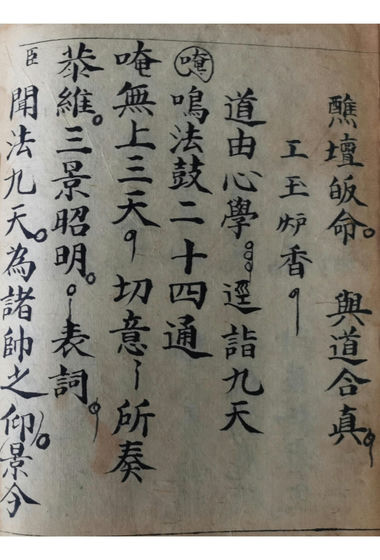 醮壇皈命。與道合真。
工玉炉香
道由心學。逕詣九天
唵鳴法鼓二十四通
唵無上三天切意所奏
恭維。三景昭明。表詞。
臣聞法九天。為諸帥之仰。景今